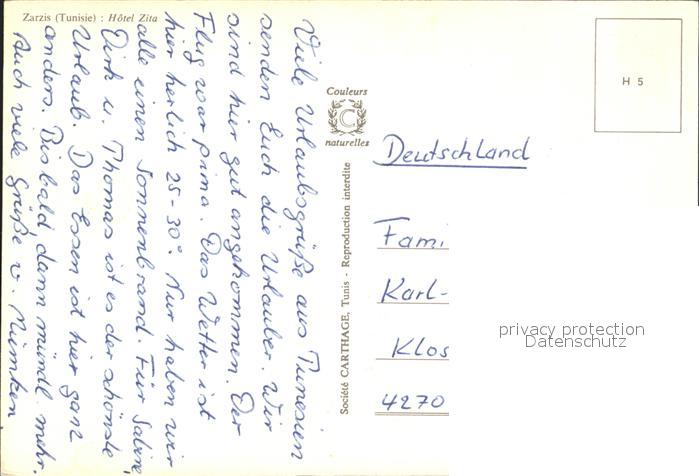 Zarzis (Tunisie) : Hôtel Zita
Viele Urlaubsgrüße aus Tunesien
senden Euch die Urlauber. Wir
sind hier gut angekommen. Der
Flug war prima. Das Wetter ist
hier herlich 25-30°. Nur haben wir
alle einen Sonnenbrand. Für Sabine
Dirk u. Thomas ist es der schönste
Urlaub. Das Essen ist hier ganz
anders. Bis bald dann mündl. mehr.
Auch viele Grüße v.
Couleurs
C
naturelles
Société CARTHAGE, Tunis - Reproduction interdite
H 5
Deutschland
Fami
Karl-
Klos
4270
privacy protection
Datenschutz